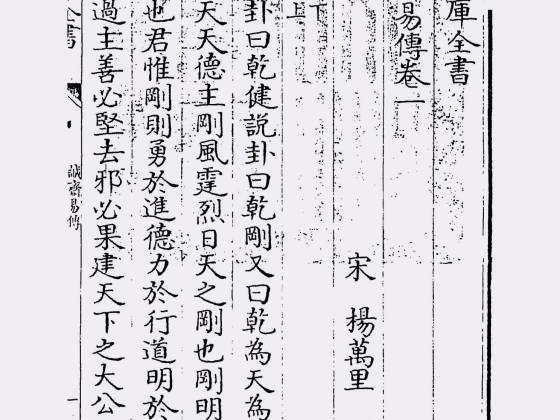 庫全書
易傳卷一
宋 楊萬里
卦曰乾健説卦曰乾剛又曰乾為天為
天天德主剛風霆烈日天之剛也剛明
也君惟剛則勇於進德力於行道明於
過主善必堅去邪必果建天下之大公
全書
誠齋易傳
一